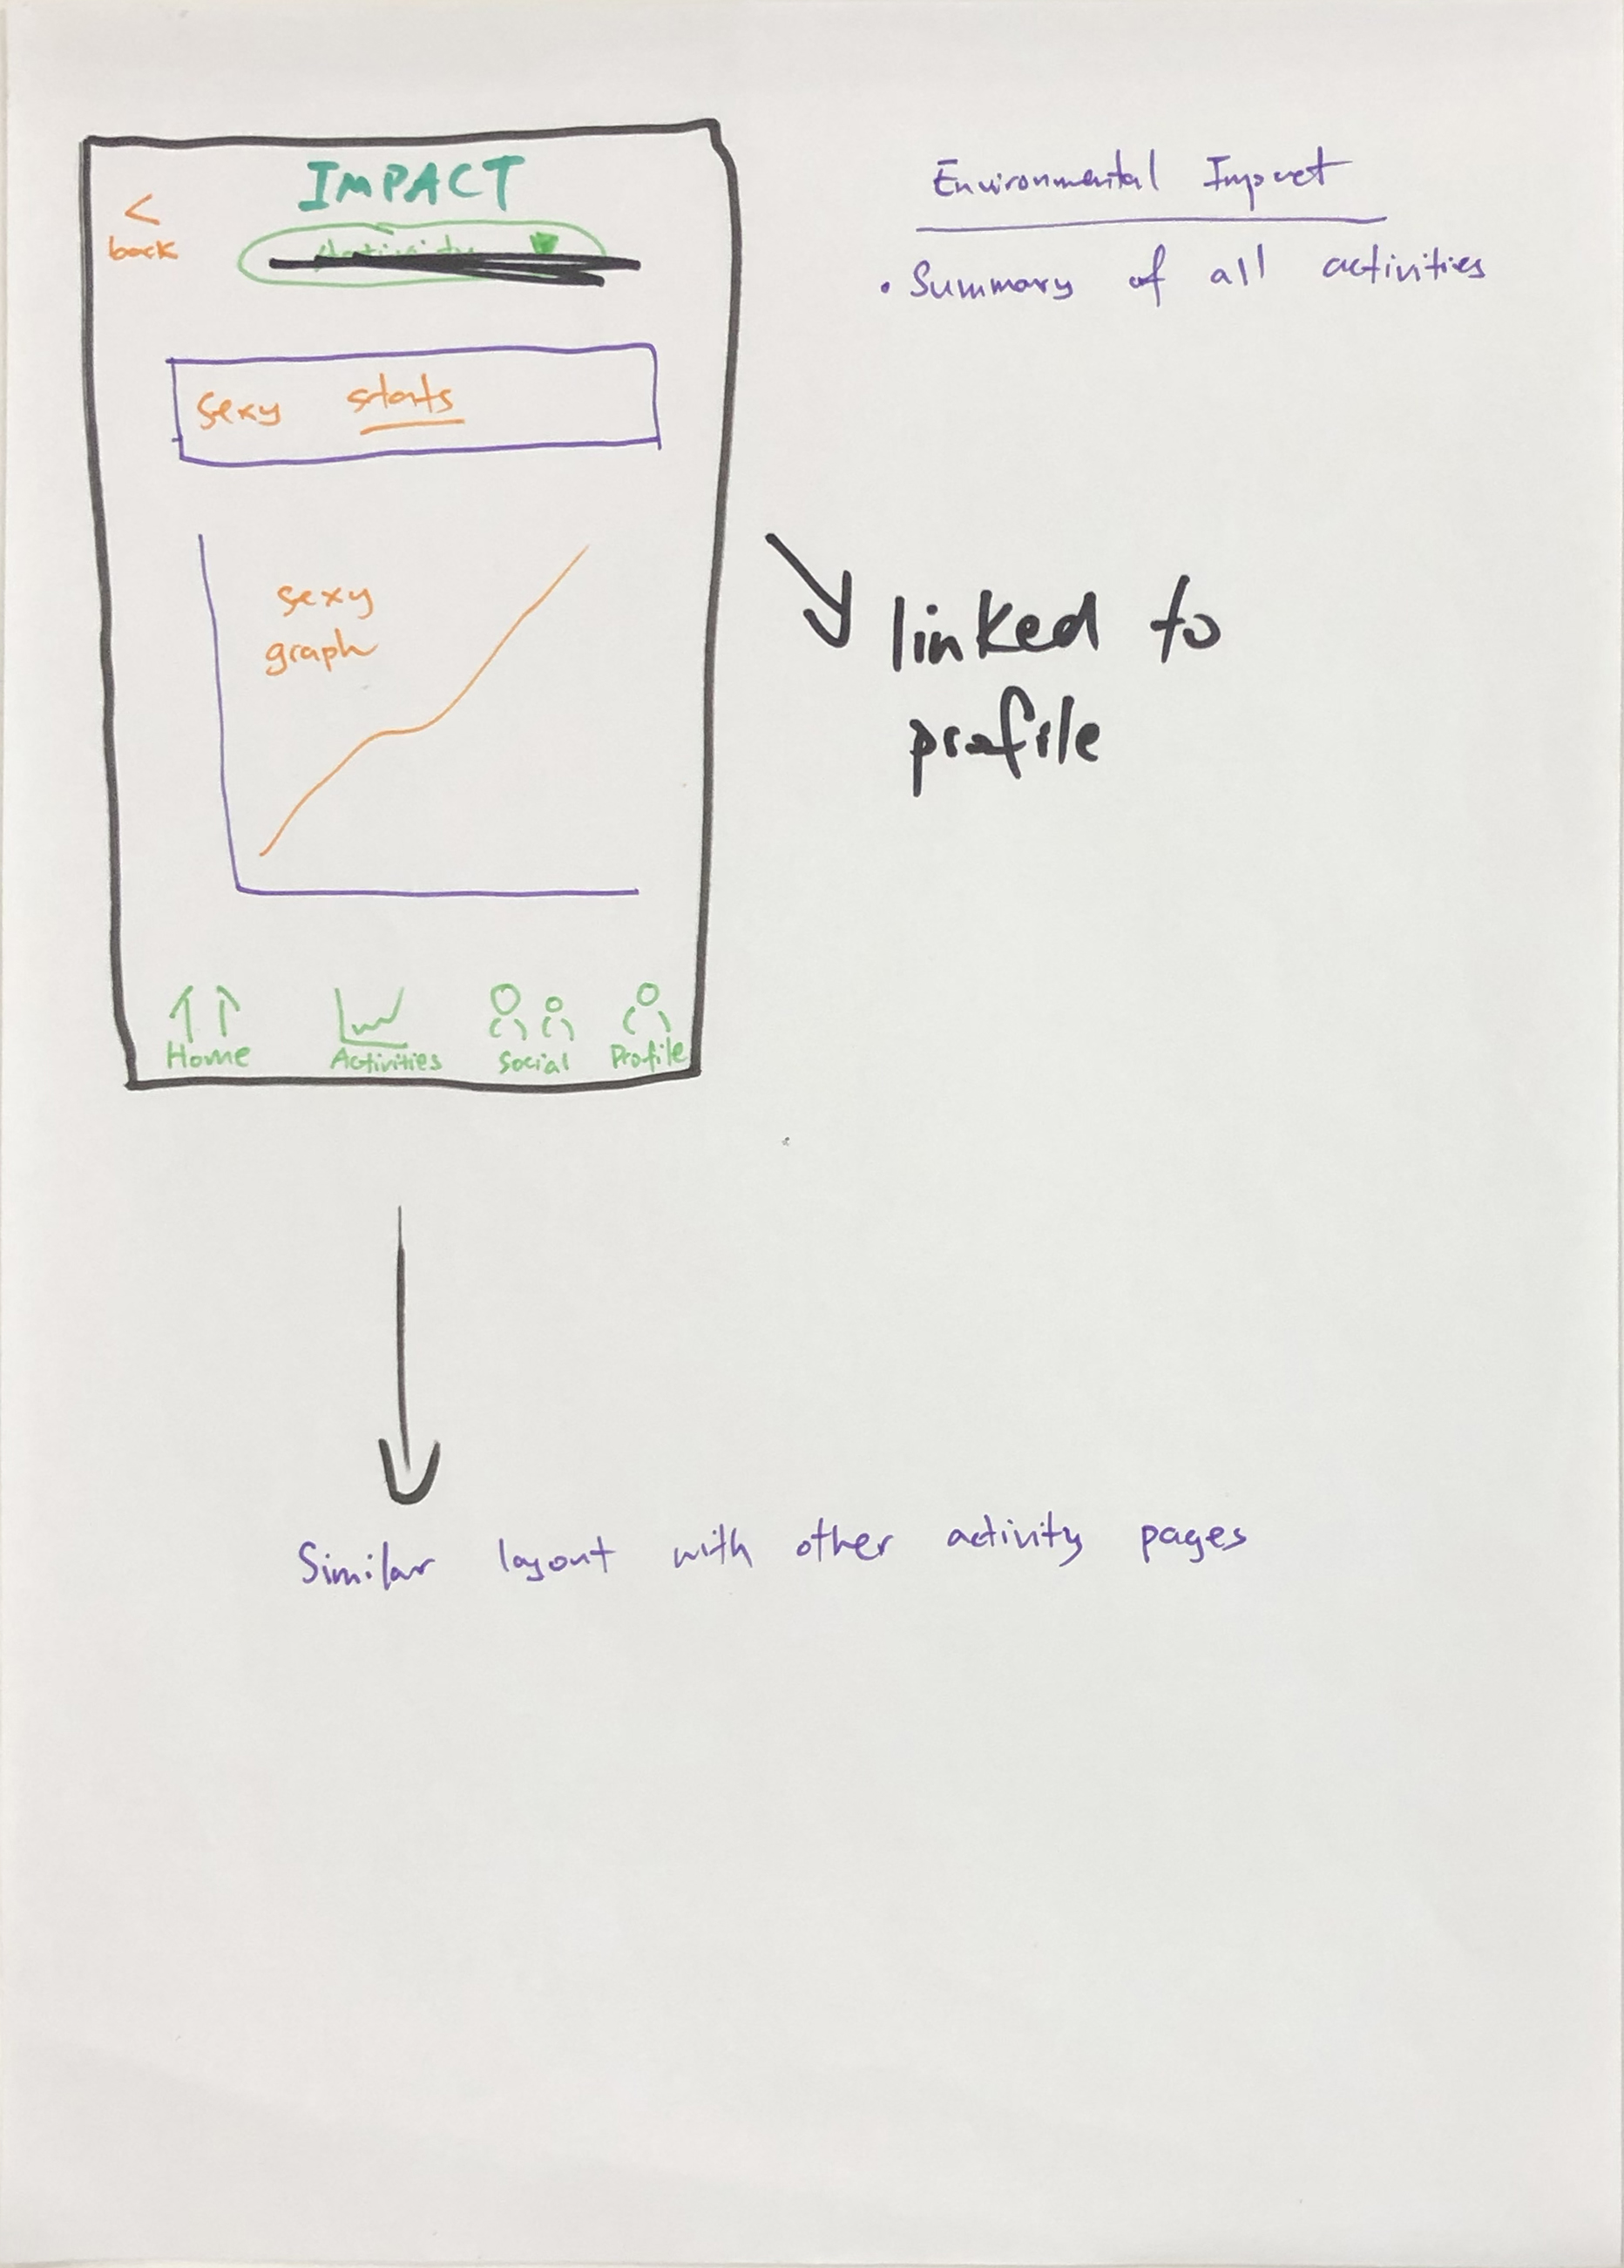 IMPACT
<
back
sexy stats
sexy
graph
Home
Activities
Social
Profile
Environmental Impact
• Summary of all activities
linked to
profile
Similar layout with other activity pages